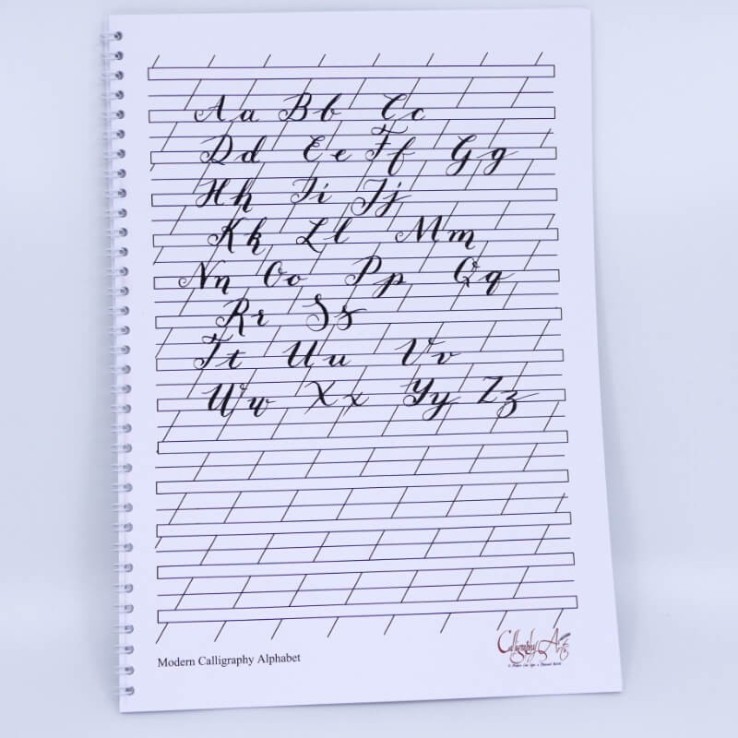 Aa Bb Cc
Dd Ee Ff Gg
Hh Ii Jj
Kk Ll Mm
Nn Oo Pp Qq
Rr Ss
Tt Uu Vv
Ww Xx Yy Zz
Modern Calligraphy Alphabet
Calligraphy Arts